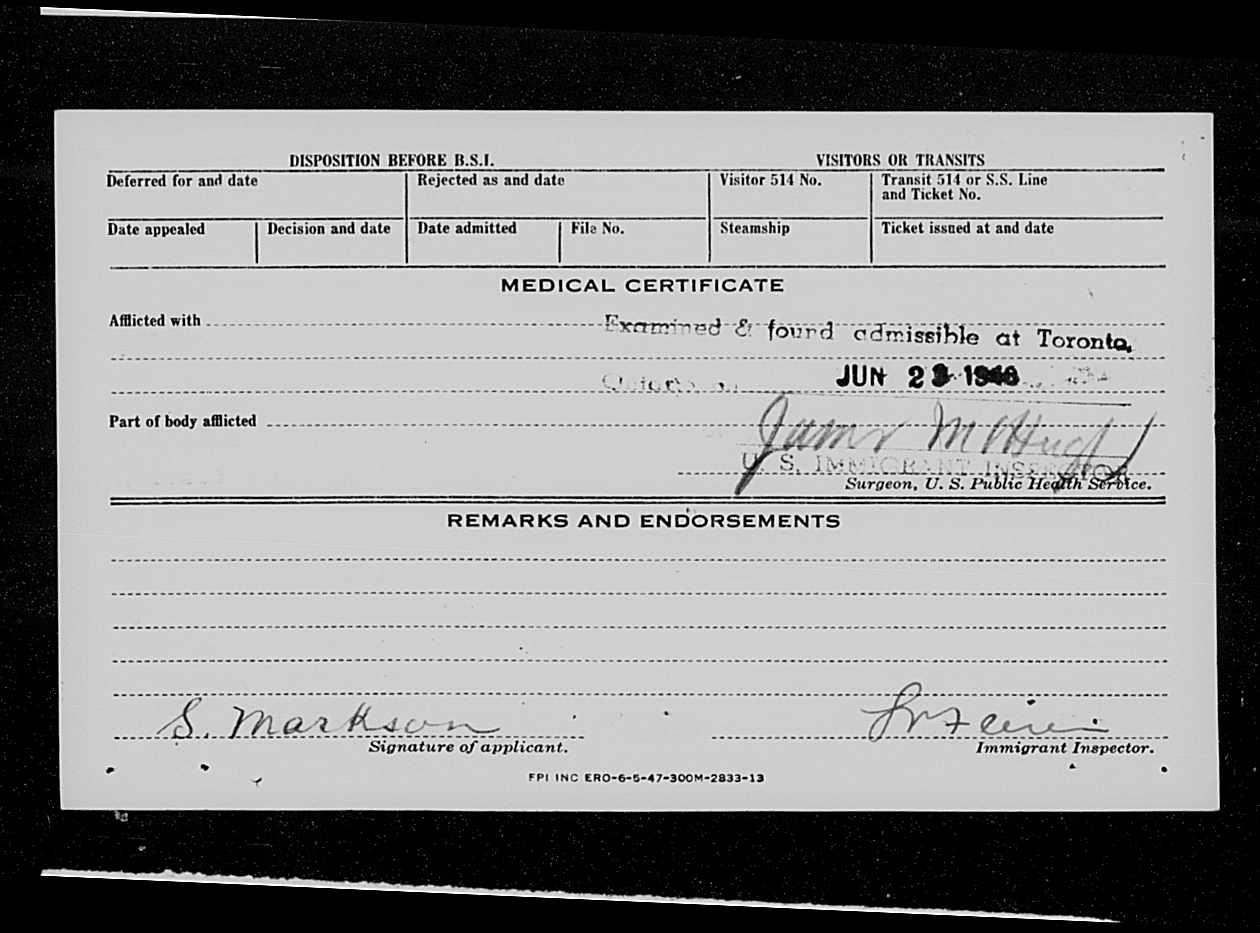 DISPOSITION BEFORE B.S.I. VISITORS OR TRANSITS
Deferred for and date Rejected as and date Visitor 514 No. Transit 514 or S.S. Line
and Ticket No.
Date appealed Decision and date Date admitted File No. Steamship Ticket issued at and date
MEDICAL CERTIFICATE
Afflicted with Examined & found admissible at Toronto,
JUN
Part of body afflicted
James
U. S. IMMIGRANT INSPECTOR
Surgeon, U. S. Public Health Service.
REMARKS AND ENDORSEMENTS
S. Markson
Signature of applicant. Immigrant Inspector.
FPI INC ERO-6-5-47-300M-2833-13